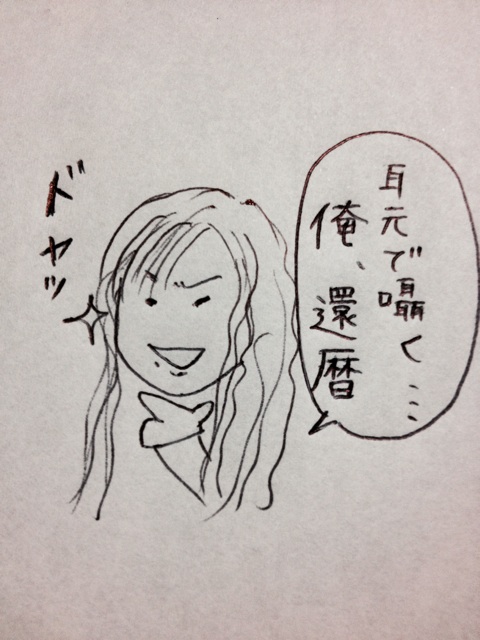 耳元で囁く…
俺、還暦
ドヤッ